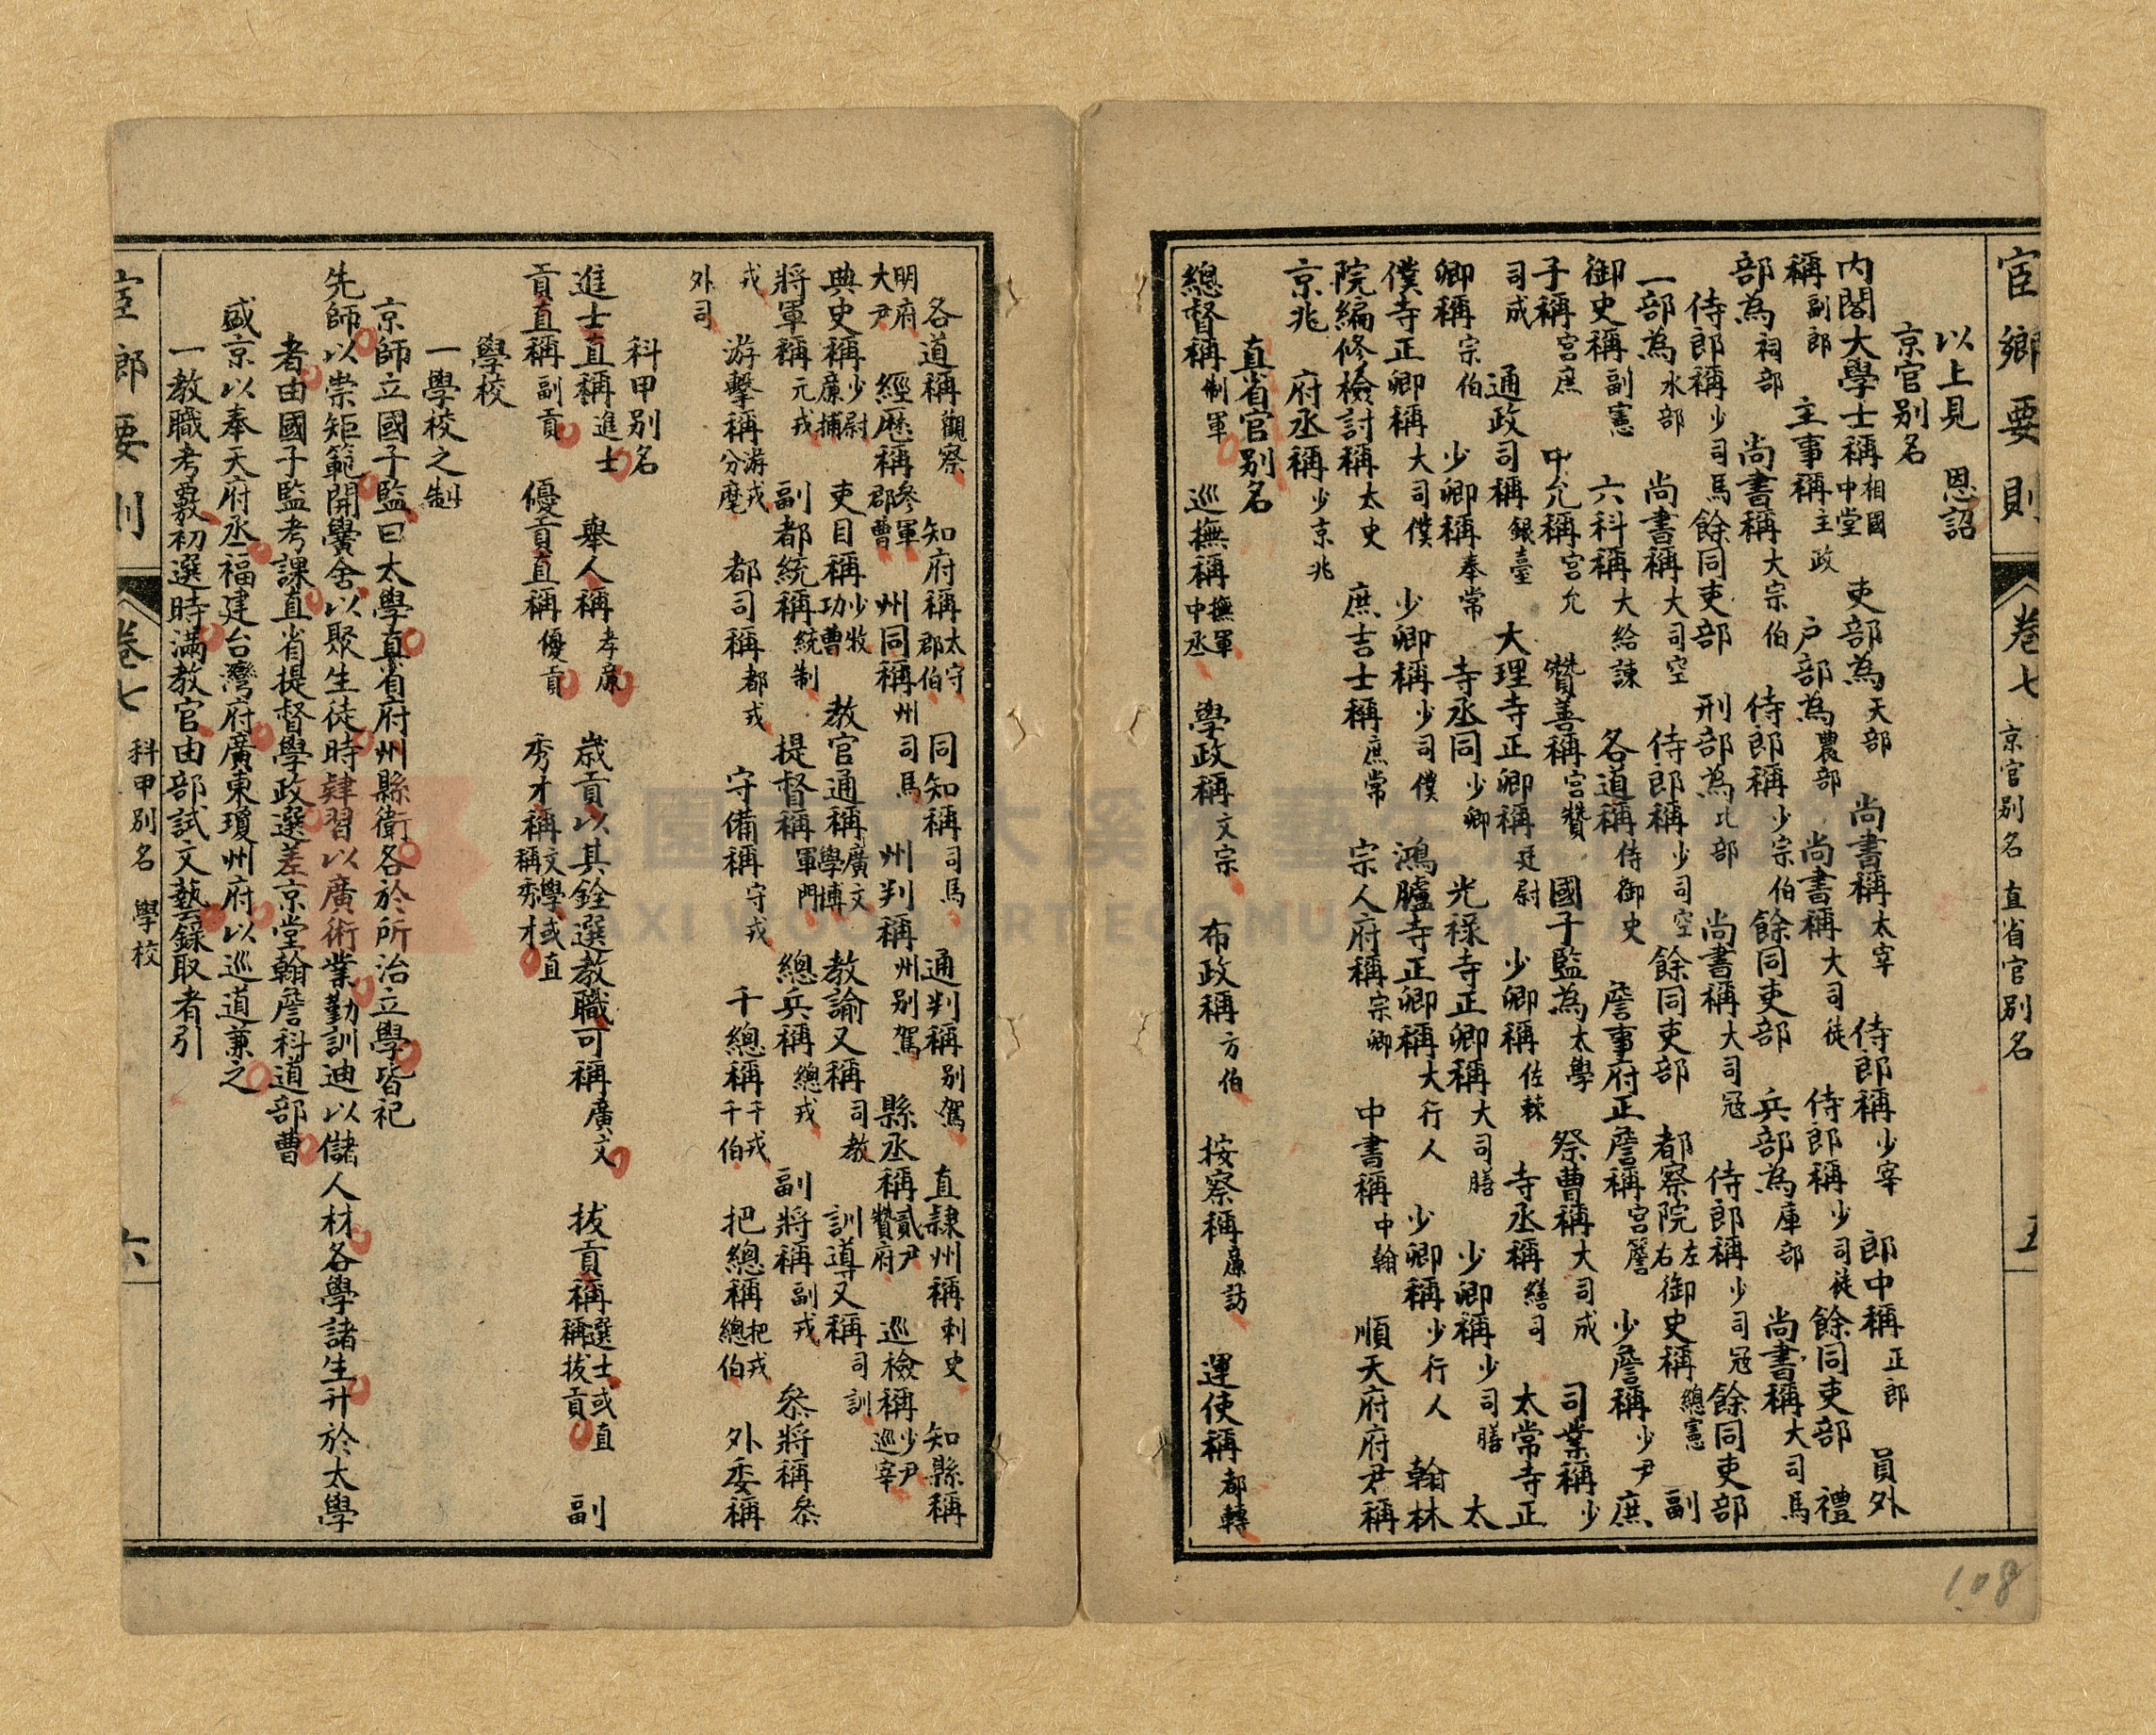 宦鄉要則 卷七 京官别名 直省官别名 五
以上見 恩詔
京官别名
内閣大學士稱相國中堂 吏部為天部 尚書稱太宰 侍郎稱少宰 郎中稱正郎 員外
稱副郎 主事稱主政 户部為農部 尚書稱大司徒 侍郎稱少司徒餘同吏部 禮
部為祠部 尚書稱大宗伯 侍郎稱少宗伯餘同吏部 兵部為庫部 尚書稱大司馬
侍郎稱少司馬餘同吏部 刑部為比部 尚書稱大司冦 侍郎稱少司冦餘同吏部
一部為水部 尚書稱大司空 侍郎稱少司空餘同吏部 都察院左右御史稱總憲 副
御史稱副憲 六科稱大給諫 各道稱侍御史 詹事府正詹稱宫詹 少詹稱少尹 庶
子稱宫庶 中允稱宫允 贊善稱宫贊 國子監為太學 祭曹稱大司成 司業稱少
司成 通政司稱銀臺 大理寺正卿稱廷尉 少卿稱佐棘 寺丞稱繕司 太常寺正
卿稱宗伯 少卿稱奉常 寺丞同少卿 光禄寺正卿稱大司膳 少卿稱少司膳 太
僕寺正卿稱大司僕 少卿稱少司僕 鴻臚寺正卿稱大行人 少卿稱少行人 翰林
院編修檢討稱太史 庶吉士稱庶常 宗人府稱宗卿 中書稱中翰 順天府府尹稱
京兆 府丞稱少京兆
直省官别名
總督稱制軍 巡撫稱撫軍中丞 學政稱文宗 布政稱方伯 按察稱廉訪 運使稱都轉
各道稱觀察 知府稱太守郡伯 同知稱司馬 通判稱别駕 直隸州稱刺史 知縣稱
明府大尹 經歷稱參軍郡曹 州同稱州司馬 州判稱州别駕 縣丞稱貳尹贊府 巡檢稱少尹巡宰
典史稱少尉廉捕 吏目稱少牧功曹 教官通稱廣文學博 教諭又稱司教 訓導又稱司訓
將軍稱元戎 副都統稱統制 提督稱軍門 總兵稱總戎 副將稱副戎 叅將稱叅
戎 游擊稱游戎分麾 都司稱都戎 守備稱守戎 千總稱千戎千伯 把總稱把戎總伯 外委稱
外司
科甲别名
進士直稱進士 舉人稱孝廉 歲貢以其銓選教職可稱廣文 拔貢稱選士或直稱拔貢 副
貢直稱副貢 優貢直稱優貢 秀才稱文學或直稱秀才
學校
一學校之制
京師立國子監曰太學直省府州縣衛各於所治立學皆祀
先師以崇矩範開黌舍以聚生徒時肄習以廣術業勤訓迪以儲人材各學諸生升於太學
者由國子監考課直省提督學政選差京堂翰詹科道部曹
盛京以奉天府丞福建台灣府廣東瓊州府以巡道兼之
一教職考覈初選時滿教官由部試文藝録取者引
卷七 科甲别名 學校 六
108